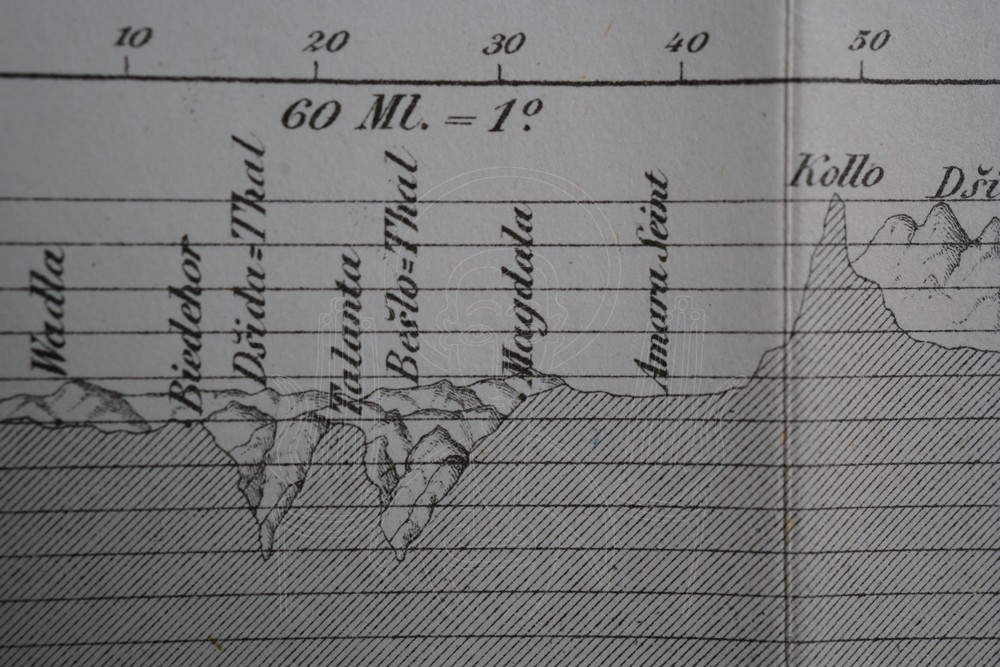 10 20 30 40 50
60 Ml. = 1°
Wadla
Biedehor
Dšida=Thal
Talanta
Bešlo=Thal
Magdala
Amara Seint
Kollo
Dši